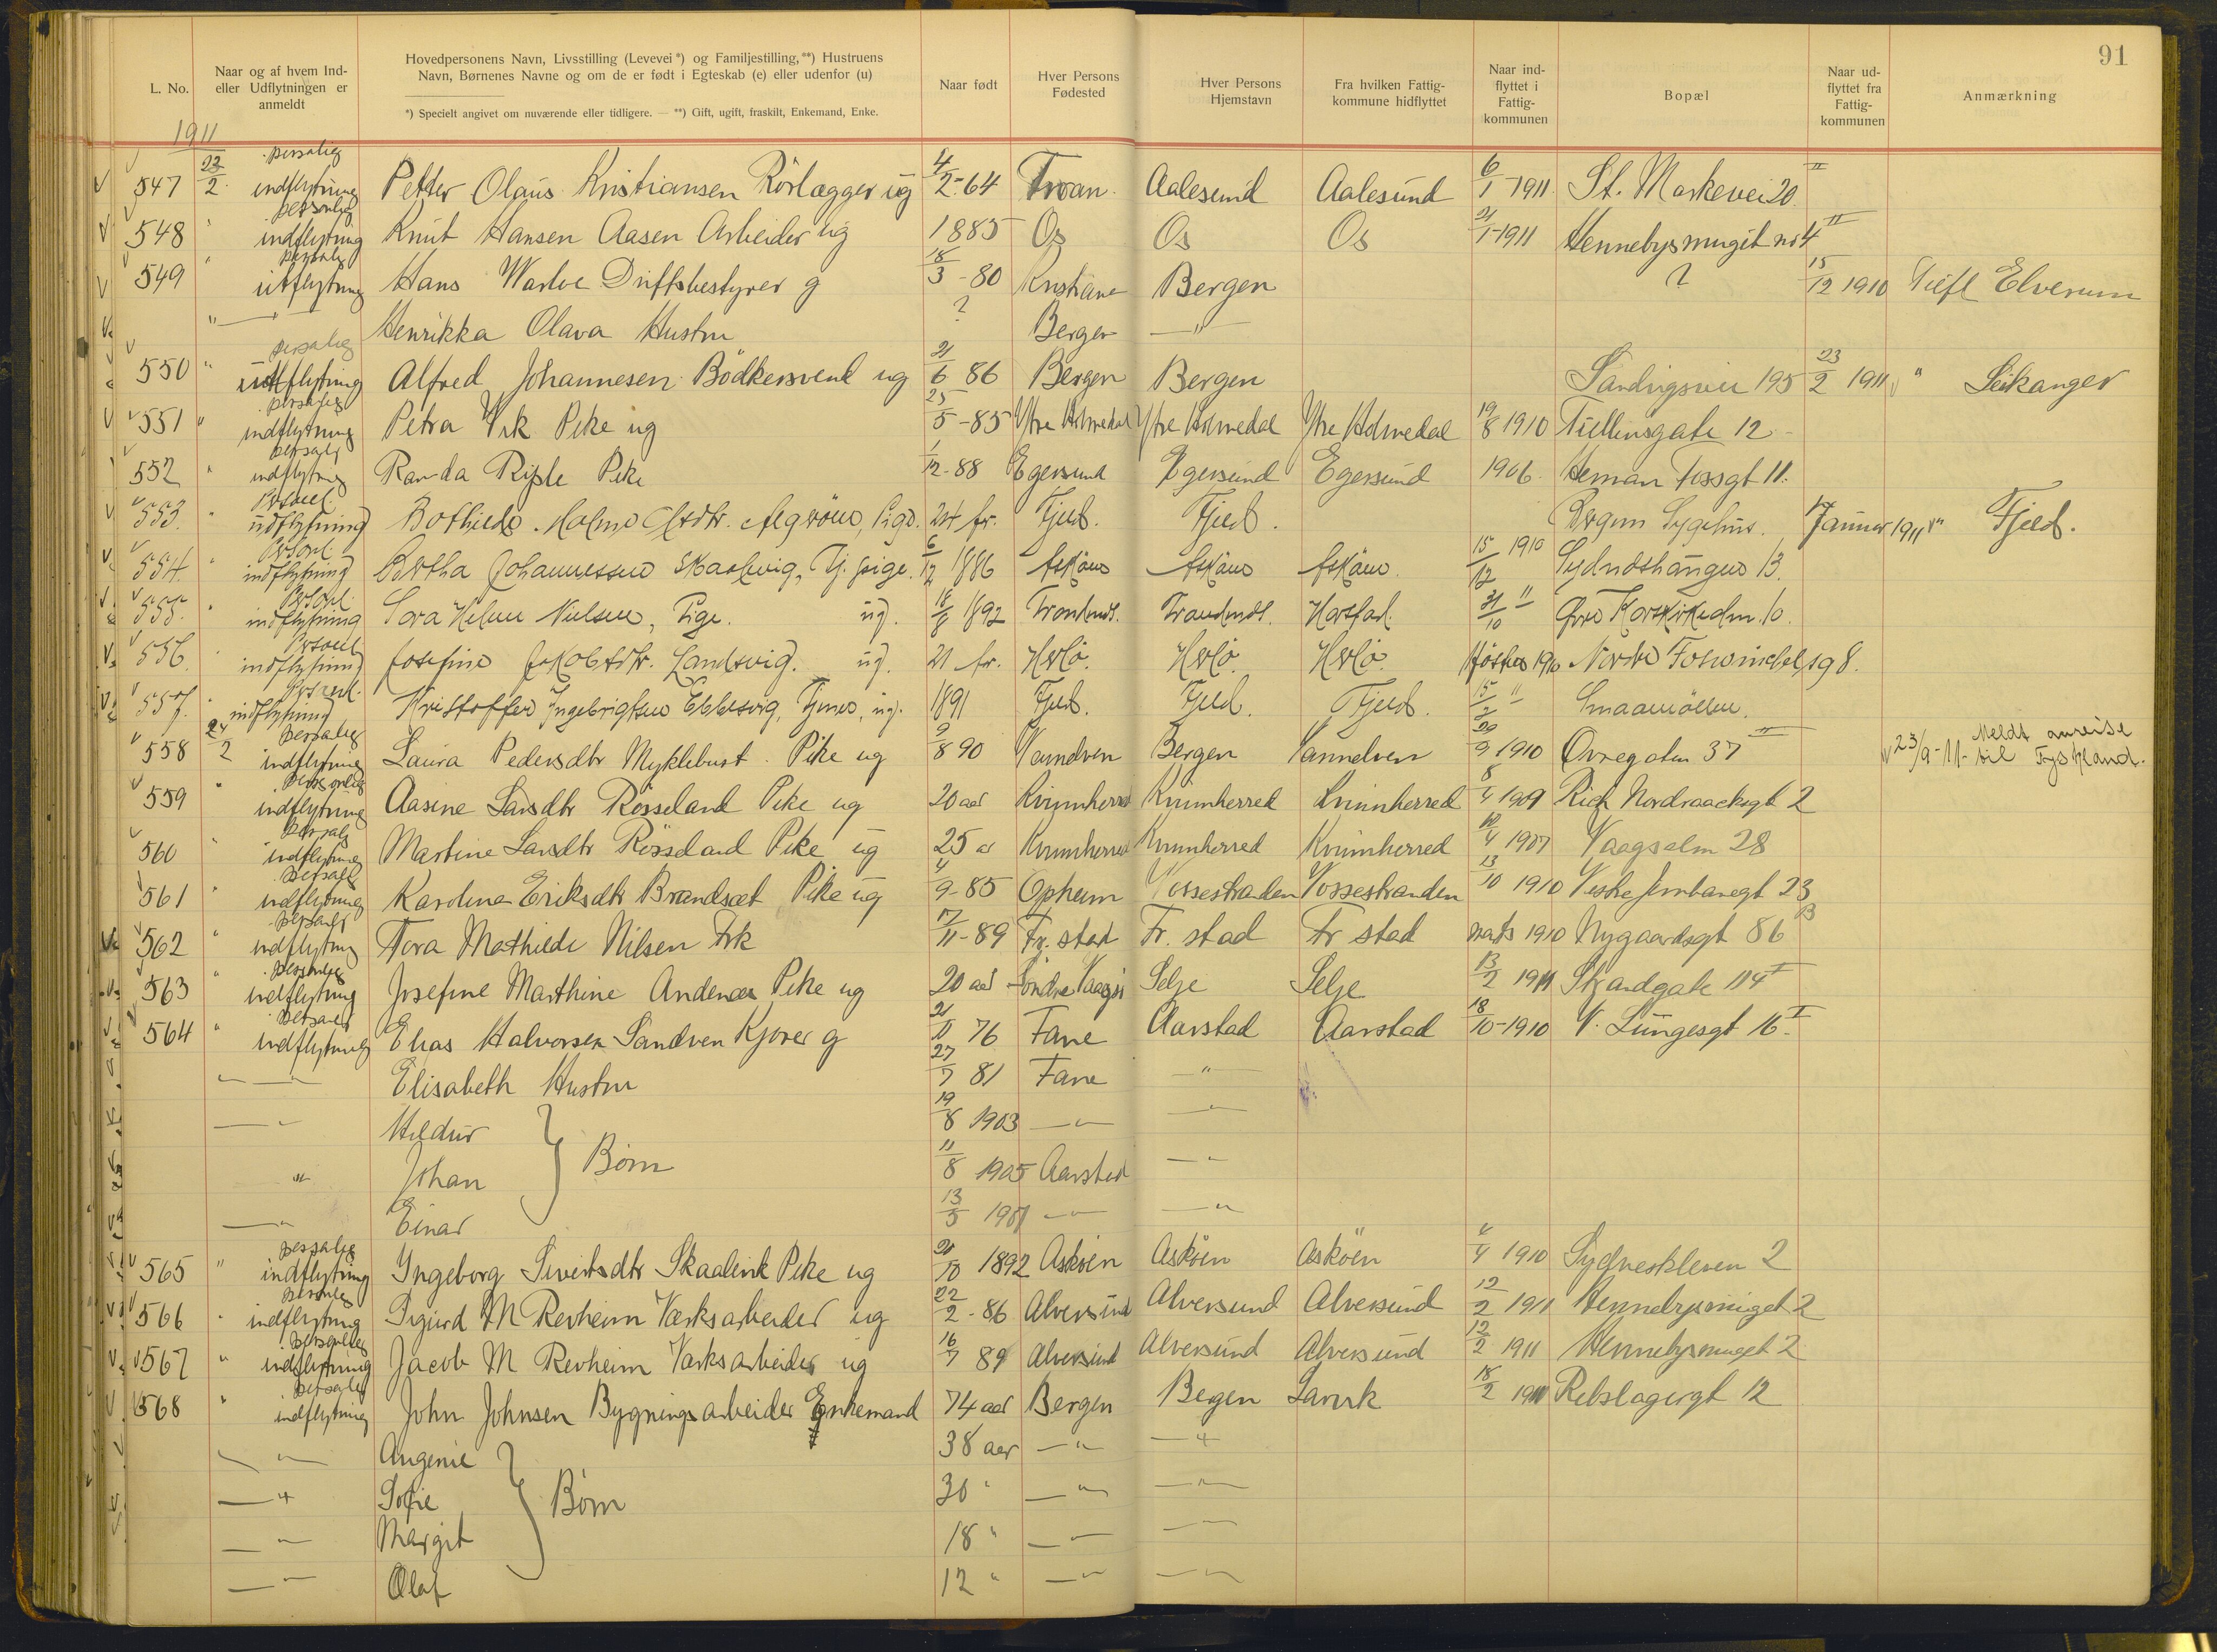 91
L. No.
Naar og af hvem Ind-
eller Udflytningen er
anmeldt
Hovedpersonens Navn, Livsstilling (Levevei*) og Familjestilling,**) Hustruens
Navn, Børnenes Navne og om de er født i Egteskab (e) eller udenfor (u)
*) Specielt angivet om nuværende eller tidligere. — **) Gift, ugift, fraskilt, Enkemand, Enke.
Naar født
Hver Persons
Fødested
Hver Persons
Hjemstavn
Fra hvilken Fattig-
kommune hidflyttet
Naar ind-
flyttet i
Fattig-
kommunen
Bopæl
Naar ud-
flyttet fra
Fattig-
kommunen
Anmærkning
1911
547 22/2 personlig indflytning Petter Olaus Kristiansen Rörlægger ug 4/2-64 Aalesund Aalesund 6/1-1911 St. Markevei 20 II
548 " personlig indflytning Knut Hansen Aasen Arbeider ug 1885 Os Os Os 21/1-1911 Hennebysmuget nr 4 II
549 " personlig utflytning Hans Driftsbestyrer g 18/3-80 Kristiania Bergen ? 15/12 1910 Tilfl Elverum
" Henrikka Olava Hustru ? Bergen — " —
550 " personlig utflytning Alfred Johannesen Bödkersvend ug 21/6 86 Bergen Bergen Sandvigsvei 195 23/2 1911 " Leikanger
551 " personlig indflytning Petra Vik Pike ug 25/5-85 Ytre Holmedal Ytre Holmedal Ytre Holmedal 19/8 1910 Tullinsgate 12
552 " personlig indflytning Randa Pike 1/12-88 Egersund Egersund Egersund 1906 Herman Fossgt 11.
553. " Personl. udflytning Bothilde Algröen, Pige. 24 år. Fjeld. Fjeld. Bergens Sygehus. Januar 1911 " Fjeld.
554. " Personl. indflytning Bertha Johannessen Skaalvig, Tj. pige. 6/12 1886 Asköen Asköen Asköen. 15/12 1910 Sydneshaugen 13.
555. " Personl. indflytning Tora Helene Nielsen, Pige. ug. 18/8 1892 Trondhj. Trondhj. Harstad. 31/10 " Øvre Korskirkealm. 10.
556. " Personl. indflytning Josefine Jakobsdtr. Landsvig. ug. 21 år. Herlö. Herlö. Herlö. Høsten 1910 Nordre Foswinckelsg 8.
557. " Personl. indflytning Kristoffer Ingebrigtsen Ebbesvig, Tjener, ug. 1891 Fjeld. Fjeld. Fjeld. 15/2 " Smaamöllen.
558 24/2 personlig indflytning Laura Pedersdtr Myklebust Pike ug 9/8 90 Vanelven Bergen Vannelven 29/9 1910 Øvregaten 37 II 23/9-11- Meldt avreise til Tyskland.
559 " personlig indflytning Aasine Larsdtr Rösseland Pike ug 20 aar Kvinnherred Kvinnherred Kvinnherred 8/4 1909 Rich Nordraacksgt 2
560 " personlig indflytning Martine Larsdtr Rösseland Pike ug 25 a Kvinnherred Kvinnherred Kvinnherred 10/4 1907 Vaagsalm 28
561 " personlig indflytning Karoline Eriksdtr Brandsæt Pike ug 4/9-85 Opheim Vossestranden Vossestranden 13/10 1910 Vestre Jernbanegt 23
562 " personlig indflytning Tora Mathilde Nilsen Frk 17/11-89 Fr. stad Fr. stad Fr stad marts 1910 Nygaardsgt 86 B
563 " personlig indflytning Josefine Marthine Andenæs Pike ug 20 aar Söndre Vaagsö Selje Selje 13/2 1911 Strandgate 114 I
564 " personlig indflytning Elias Halvorsen Sandven Kjører g 21/11 76 Fane Aarstad Aarstad 18/10-1910 V. Lungesgt 16 I
— " — Elisabeth Hustru 27/7 81 Fane — " —
— " — Hildur 19/8 1903 — " — — " —
" Johan } Börn 11/8 1905 Aarstad — " —
— " — Einar 13/5 1907 — " — — " —
565 " personlig indflytning Ingeborg Sivertsdtr Skaalevik Pike ug 21/10 1892 Asköen Asköen Asköen 4/4 1910 Sydneskleven 2
566 " personlig indflytning Sigurd M Revheim Værksarbeider ug 22/2-86 Alversund Alversund Alversund 12/2 1911 Hennebysmuget 2
567 " personlig indflytning Jacob M Revheim Værksarbeider ug 16/7 89 Alversund Alversund Alversund 12/2 1911 Hennebysmuget 2
568 " personlig indflytning John Johnsen Bygningsarbeider Enkemand 74 aar Bergen Bergen Larvik 18/2 1911 Rebslagergt 12
— " — Angenie 38 aar — " — — " —
— " — Sofie } Börn 30 " — " — — " —
— " — Margit 18 " — " — — " —
— " — Olaf 12 " — " — — " —